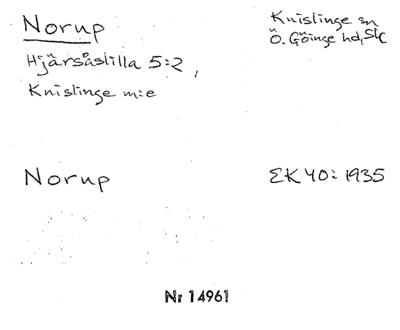 Norup
Knislinge sn
Ö. Göinge hd, Sk
Hjärsåslilla 5:2,
Knislinge m:e
Norup
EK 40: 1935
Nr 14961